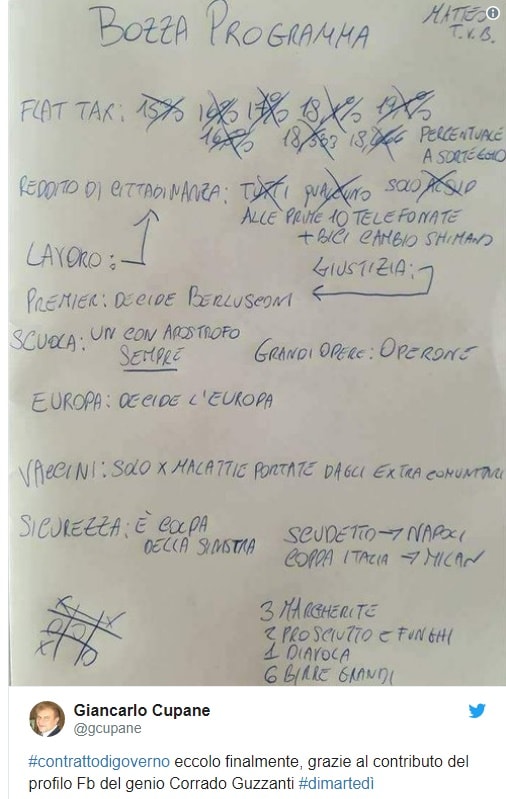 BOZZA PROGRAMMA
MATTEO
T.V.B.
FLAT TAX: 15% 16% 17% 18, % 19, %
16, % 18,503 18, PERCENTUALE
A SORTEGGIO
REDDITO DI CITTADINANZA: TUTTI QUALCUNO SOLO
ALLE PRIME 10 TELEFONATE
+ BICI CAMBIO SHIMANO
LAVORO:
GIUSTIZIA:
PREMIER: DECIDE BERLUSCONI
SCUOLA: UN CON APOSTROFO
SEMPRE
GRANDI OPERE: OPERONE
EUROPA: DECIDE L'EUROPA
VACCINI: SOLO X MALATTIE PORTATE DAGLI EXTRA COMUNITARI
SICUREZZA: È COLPA
DELLA SINISTRA
SCUDETTO → NAPOLI
COPPA ITALIA → MILAN
3 MARGHERITE
2 PROSCIUTTO E FUNGHI
1 DIAVOLA
6 BIRRE GRANDI
Giancarlo Cupane
@gcupane
#contrattodigoverno eccolo finalmente, grazie al contributo del
profilo Fb del genio Corrado Guzzanti #dimartedì